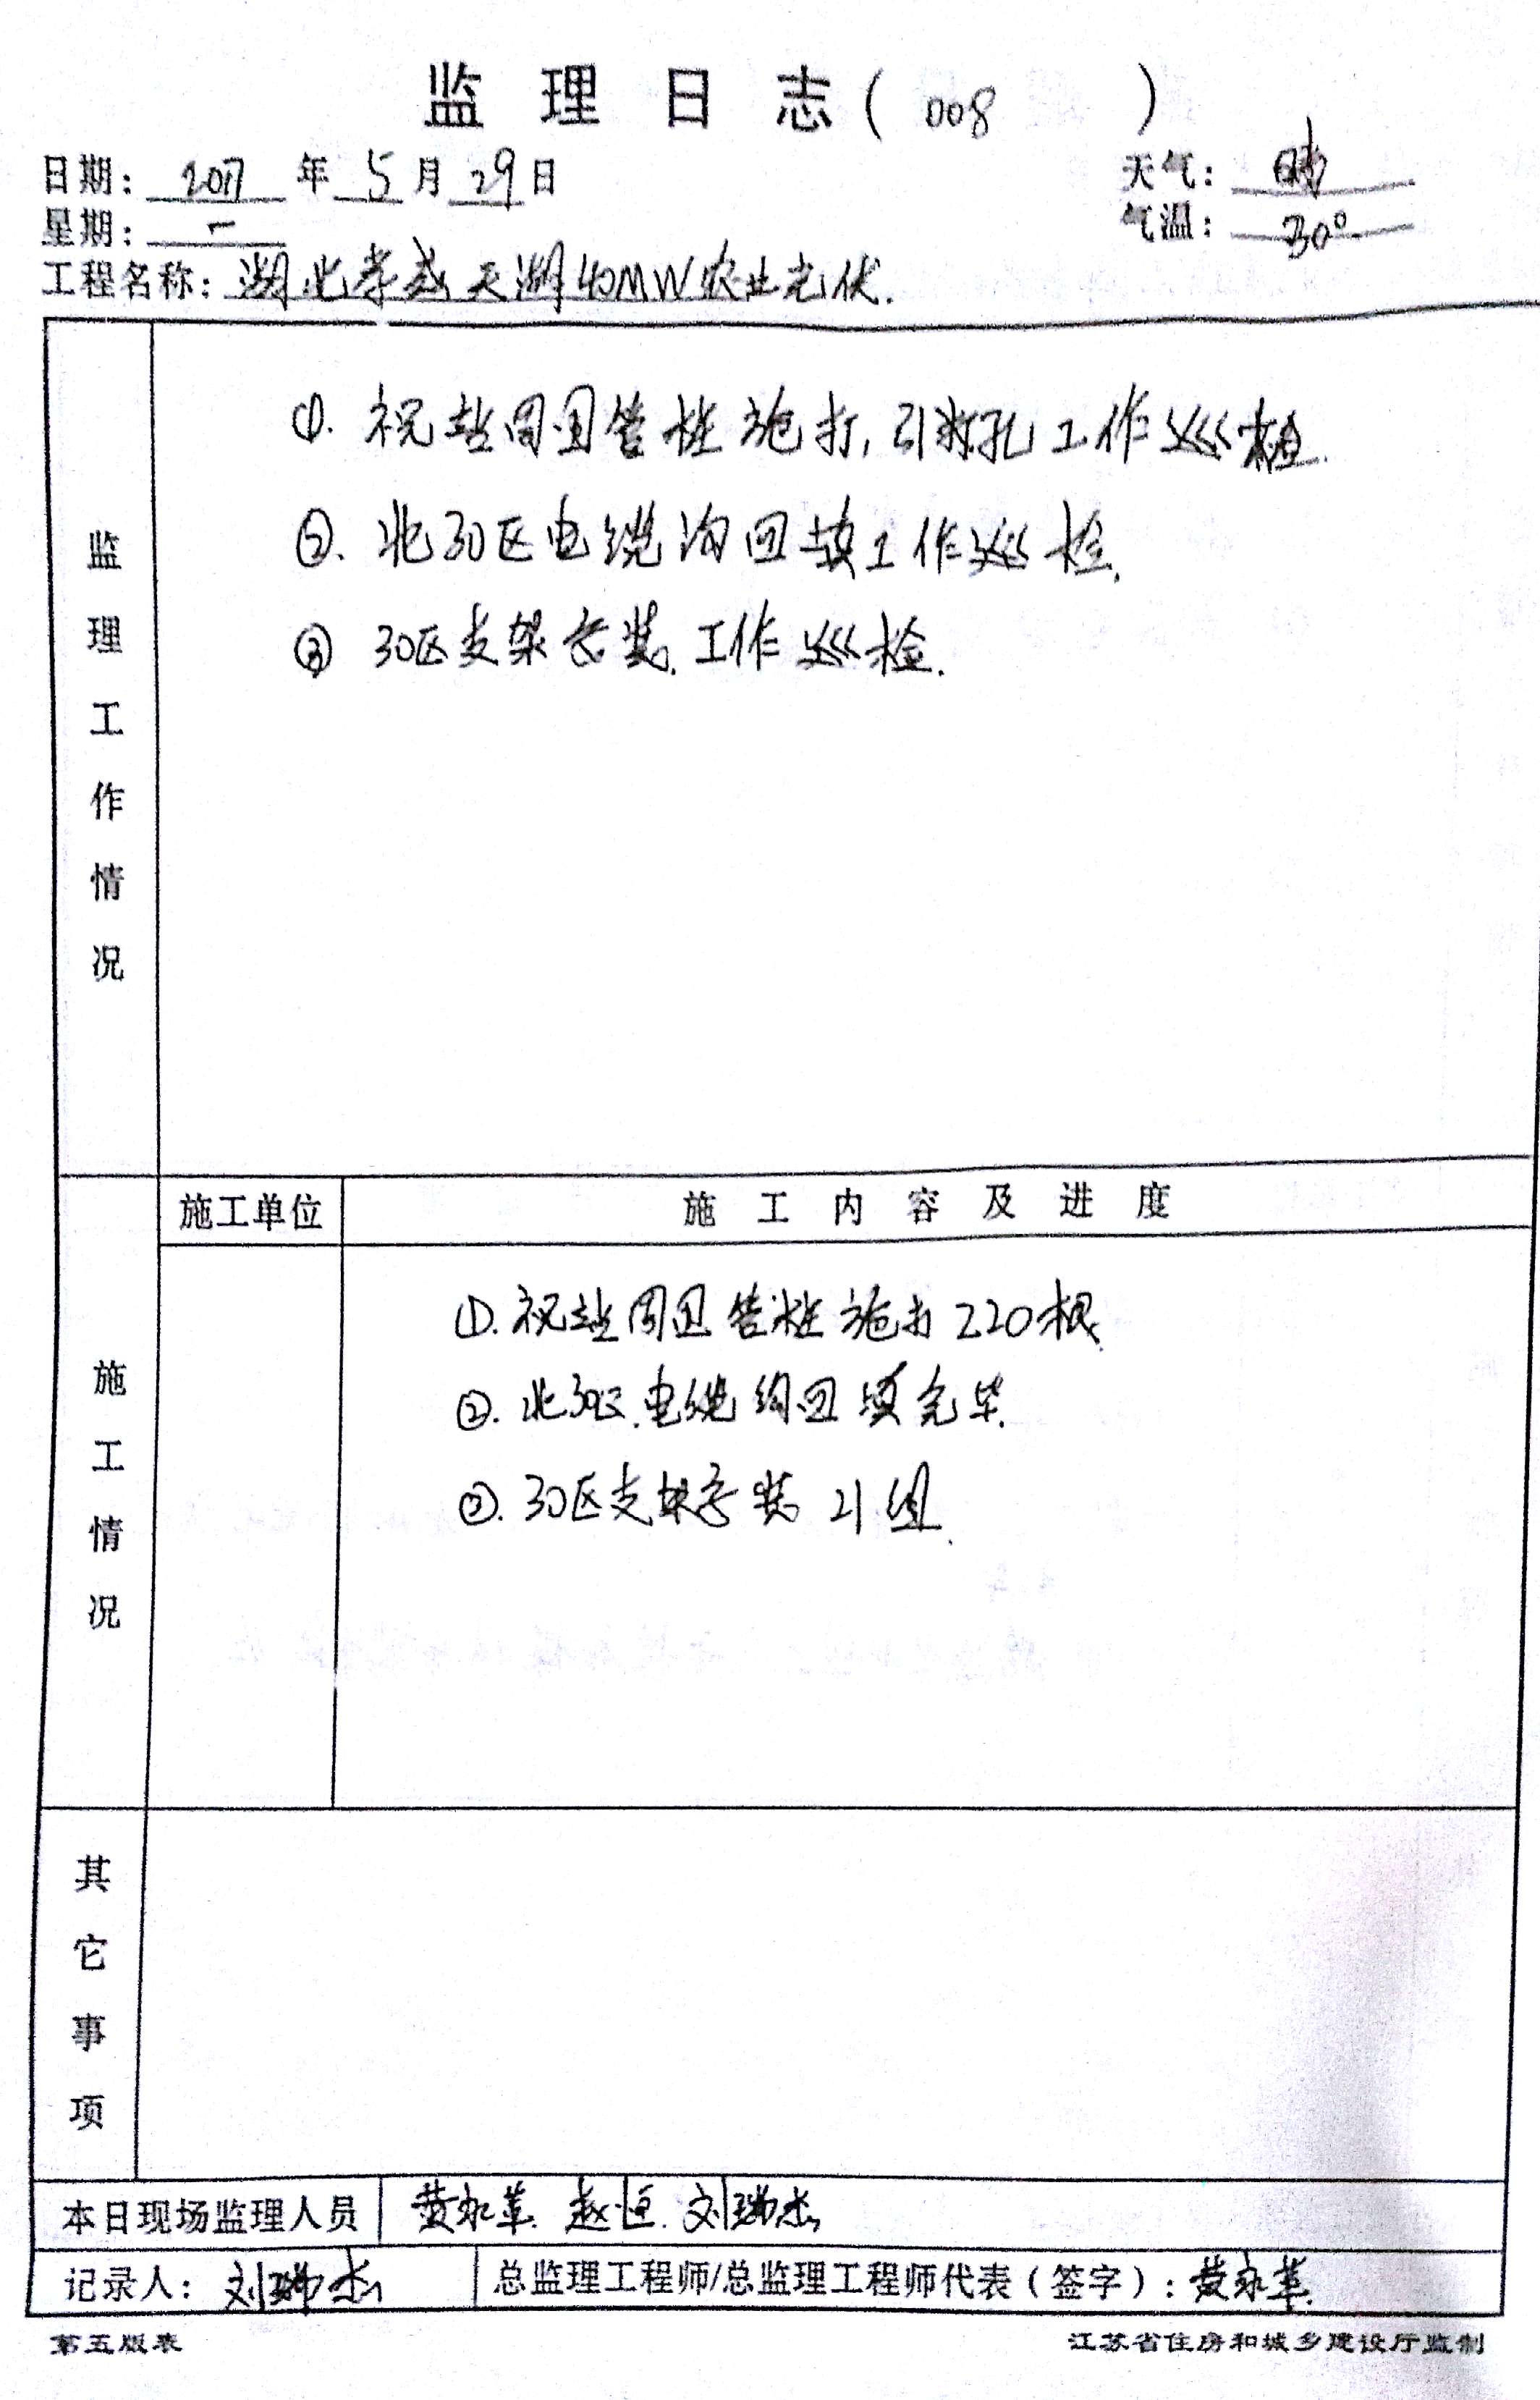 监理日志(008)
日期:2017年5月29日
天气:晴
星期:一
气温:30°
工程名称:湖北孝感天湖40MW农业光伏.
监理工作情况
①.祝站周围管桩施打,引孔工作巡检.
②.北30区电缆沟回填工作巡检.
③30区支架安装.工作巡检.
施工情况
施工单位
施工内容及进度
①.祝站周围管桩施打220根.
②.北30区.电缆沟回填完毕.
③.30区支架安装21组.
其它事项
本日现场监理人员 黄永革.赵恒.刘瑞杰
记录人:刘瑞杰 总监理工程师/总监理工程师代表(签字):黄永革.
第五版表
江苏省住房和城乡建设厅监制